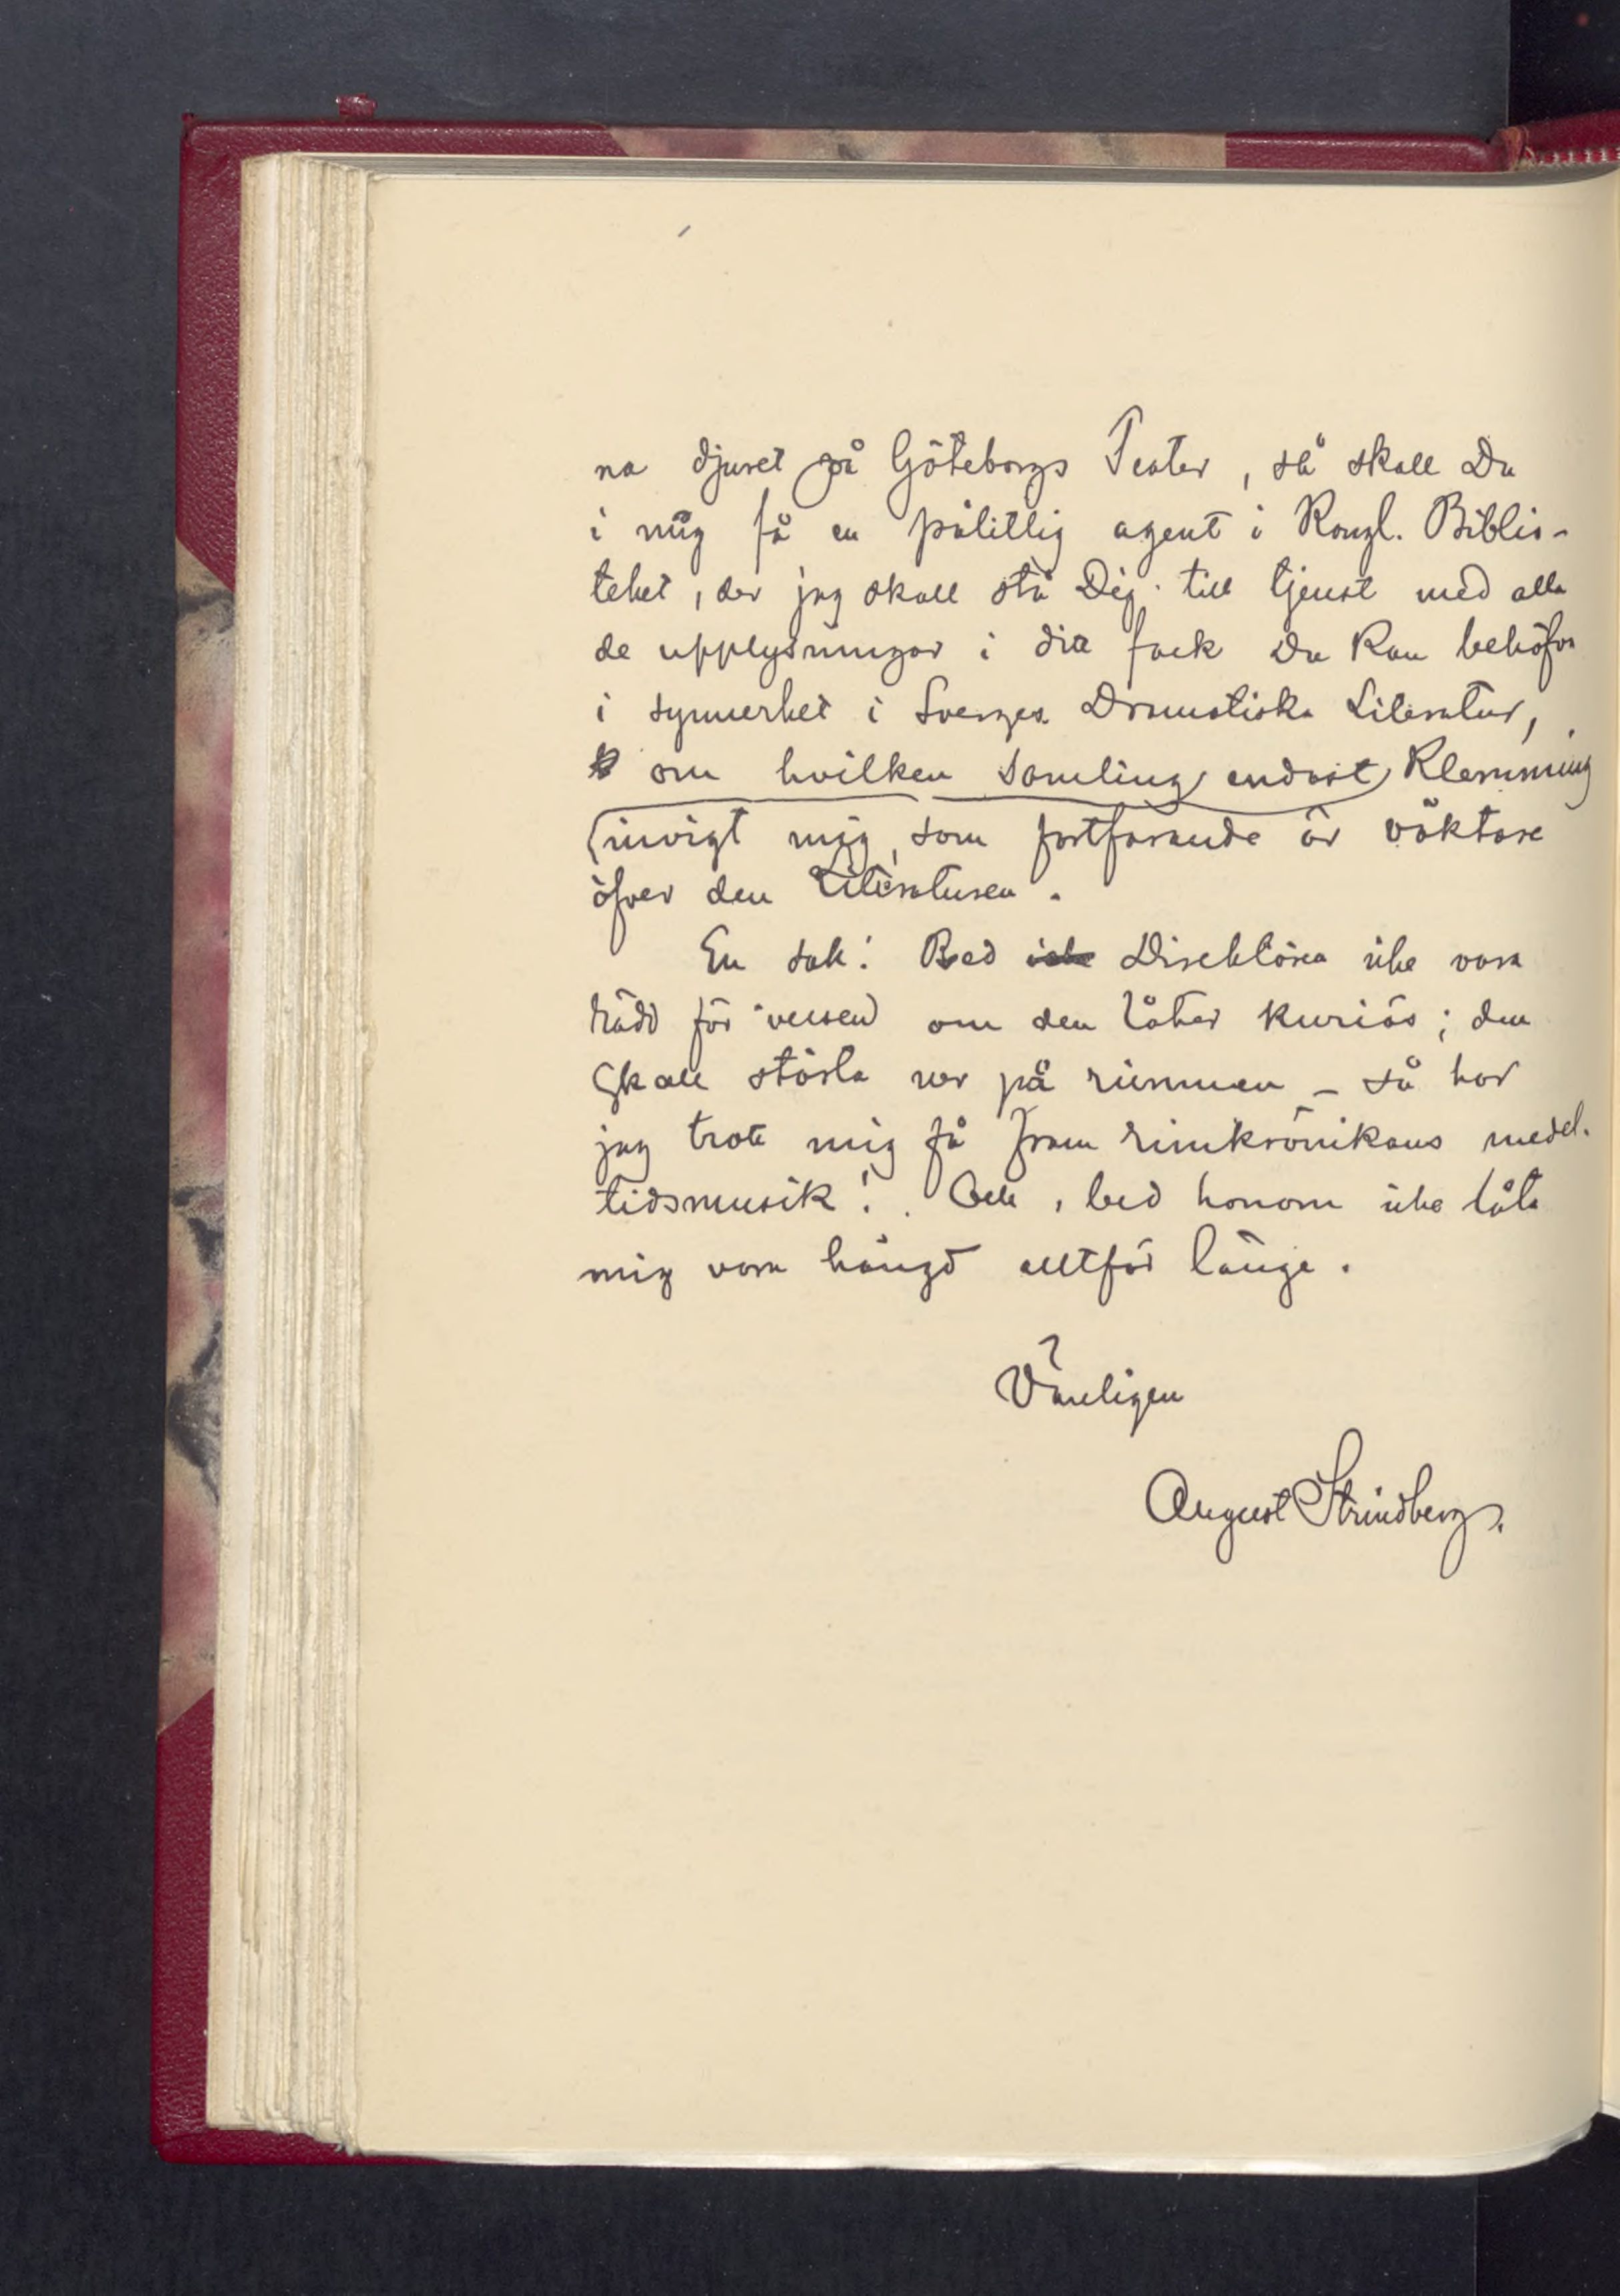 na djuret på Göteborgs Teater, så skall Du
i mig få en pålitlig agent i Kongl. Biblio-
teket, der jag skall stå Dig till tjenst med alla
de upplysningar i ditt fack Du kan behöfva
i synnerhet i Sveriges Dramatiska Literatur,
om hvilken samling endast Klemming
invigt mig, som fortfarande är väktare
öfver den Literaturen.
En sak! Bed icke Direktören icke vara
rädd för versen om den låter kuriös; den
skall störta ner på rimmen – så har
jag trott mig få fram rimkrönikans medel-
tidsmusik! Och, bed honom icke låta
mig vara hängd alltför länge.
Vänligen
August Strindberg.